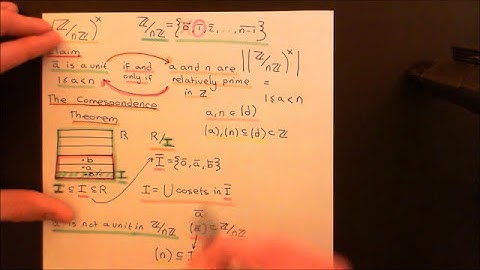 (ℤ/nℤ)^× ℤ/nℤ = {0̄, 1̄, 2̄, ..., n-1̄}
Claim
ā is a unit if and only if a and n are relatively prime in ℤ |(ℤ/nℤ)^×|
1≤a<n = 1≤a<n
The Correspondence Theorem
a, n ∈ (d)
(a), (n) ⊆ (d) ⊂ ℤ
R R/I
·b
·a
·0
Ī = {0̄, ā, b̄}
I ⊆ I ⊆ R I = ∪ cosets in Ī
ā
is not a unit in ℤ/nℤ (ā) = ℤ/nℤ
(n) ⊆ I